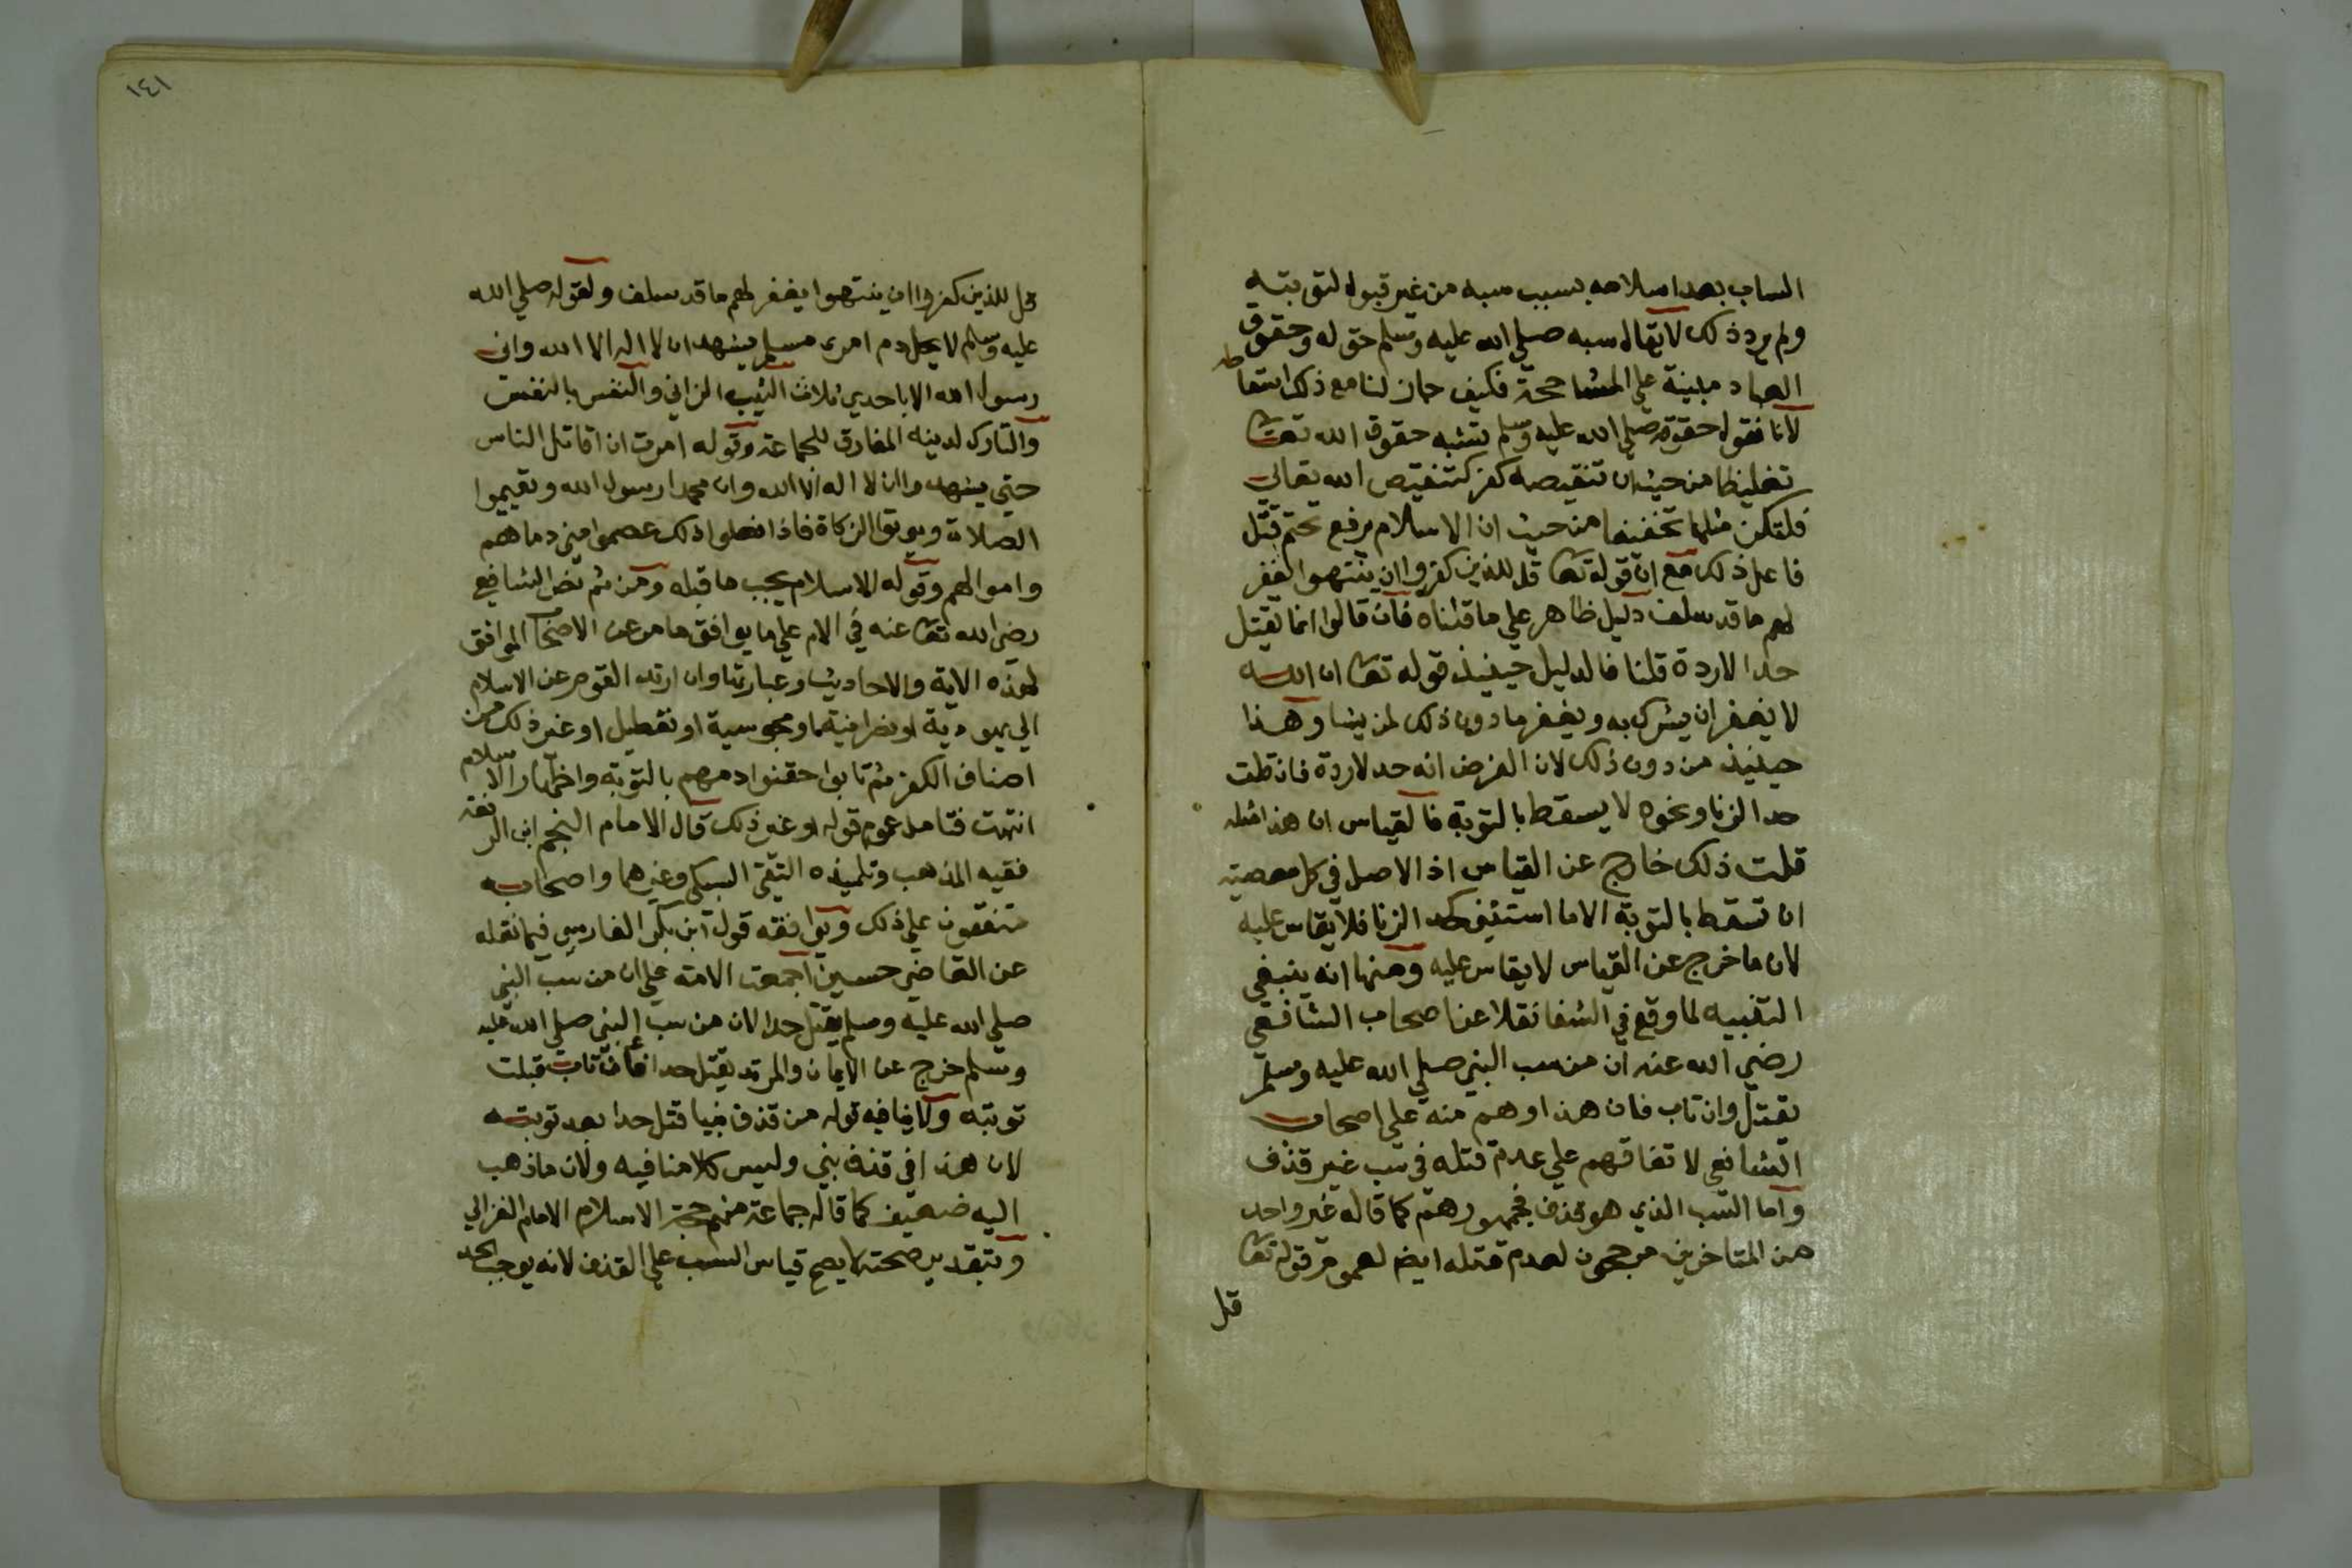 الساب بعد اسلامه بسبب سبه من غير قبول لتوبته
ولم يرد ذلك لا يقال سبه صلي الله عليه وسلم حق له وحقوق
العباد مبنية علي المشاححة فكيف جاز لنا مع ذلك اسقاطه
لانا نقول حقوقه صلي الله عليه وسلم تشبه حقوق الله تعا
تغليظا من حيث ان تنقيصه كفر كتنقيص الله تعالي
فلتكن مثلها تخفيفا من حيث ان الاسلام يرفع تحتم قتل
فاعل ذلك مع ان قوله تعا قل للذين كفروا ان ينتهوا يغفر
لهم ما قد سلف دليل ظاهر علي ما قلناه فان قالوا انما يقتل
حدا لا ردة قلنا فالدليل حينيذ قوله تعا ان الله
لا يغفر ان يشرك به ويغفر ما دون ذلك لمن يشا وهذا
حينيذ من دون ذلك لان الفرض انه حد لا ردة فان قلت
حد الزنا ونحوه لا يسقط بالتوبة فالقياس ان هذا مثله
قلت ذلك خارج عن القياس اذ الاصل في كل معصية
ان تسقط بالتوبة الا ما استثني كحد الزنا فلا يقاس عليه
لان ما خرج عن القياس لا يقاس عليه ومنها انه ينبغي
التنبيه لما وقع في الشفا نقلا عن اصحاب الشافعي
رضي الله عنه ان من سب النبي صلي الله عليه وسلم
يقتل وان تاب فان هذا وهم منه علي اصحاب
الشافعي لاتفاقهم علي عدم قتله في سب غير قذف
واما السب الذي هو قذف فجمهورهم كما قاله غير واحد
من المتاخرين مرجحون لعدم قتله ايضا لعموم قوله تعا
قل
١٤١
قل للذين كفروا ان ينتهوا يغفر لهم ما قد سلف ولقوله صلي الله
عليه وسلم لا يحل دم امرى مسلم يشهد ان لا اله الا الله واني
رسول الله الا باحدي ثلاث الثيب الزاني والنفس بالنفس
والتارك لدينه المفارق للجماعة وقوله امرت ان اقاتل الناس
حتي يشهدوا ان لا اله الا الله وان محمدا رسول الله ويقيموا
الصلاة ويوتوا الزكاة فاذا فعلوا ذلك عصموا مني دماهم
واموالهم وقوله الاسلام يجب ما قبله ومن ثم نص الشافعي
رضي الله تعا عنه في الام علي ما يوافق ما مر عن الاصحاب الموافق
لهذه الاية والاحاديث وعبارتها وان ارتد القوم عن الاسلام
الي يهودية او نصرانية او مجوسية او تعطيل او غير ذلك من
اصناف الكفر ثم تابوا حقنوا دمهم بالتوبة واظهار الاسلام
انتهت فتامل عموم قوله او غير ذلك قال الامام النجم ابن الرفعة
فقيه المذهب وتلميذه التقي السبكي وغيرهما واصحابه
متفقون علي ذلك ويوافقه قول ابن بكر الفارسي فيما نقله
عن القاضي حسين اجمعت الامة علي ان من سب النبي
صلي الله عليه وسلم يقتل حدا لان من سب النبي صلي الله عليه
وسلم خرج عن الايمان والمرتد يقتل حدا فان تاب قبلت
توبته ولا ينافيه قوله من قذف نبيا قتل حدا بعد توبته
لان هذا في قذف نبي وليس كلامنا فيه ولان ما ذهب
اليه ضعيف كما قاله جماعة منهم حجة الاسلام الامام الغزالي
وبتقدير صحته لا يصح قياس السب علي القذف لانه يوجب الحد